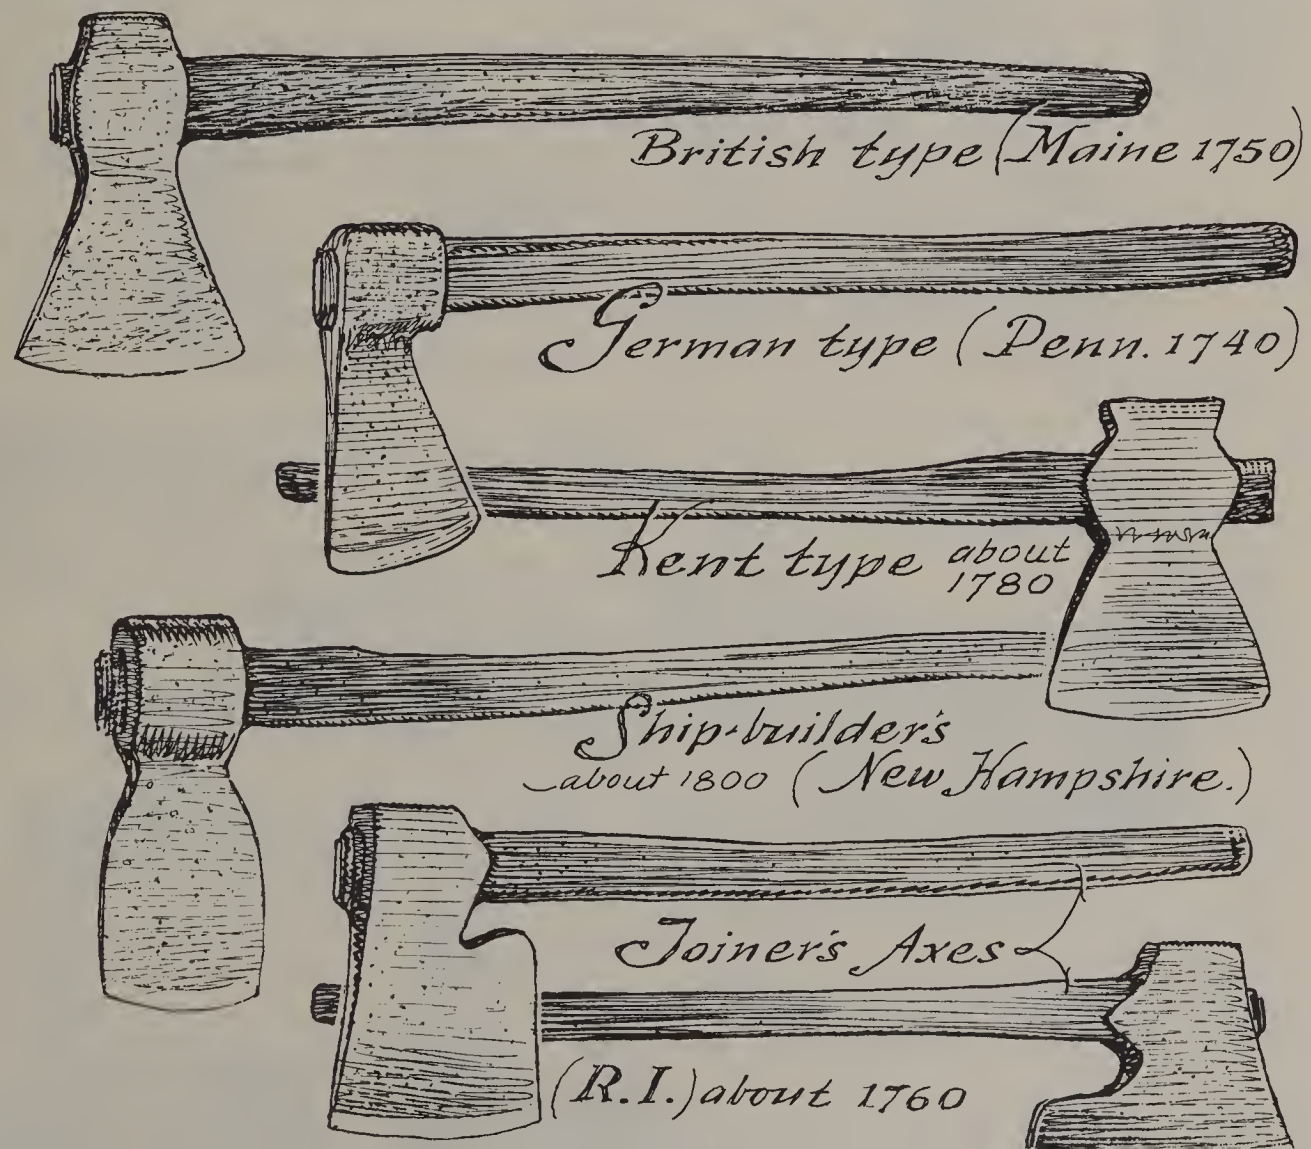 British type (Maine 1750)
German type (Penn. 1740)
Kent type about
1780
Ship-builder's
about 1800 (New Hampshire.)
Joiner's Axes
(R.I.) about 1760